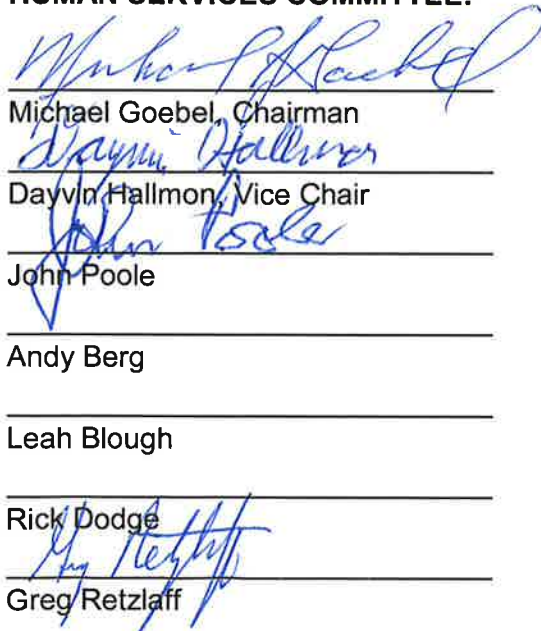 HUMAN SERVICES COMMITTEE:
Michael Goebel, Chairman
Dayvin Hallmon
Dayvin Hallmon, Vice Chair
John Poole
John Poole
Andy Berg
Leah Blough
Rick Dodge
Greg Retzlaff
Greg Retzlaff